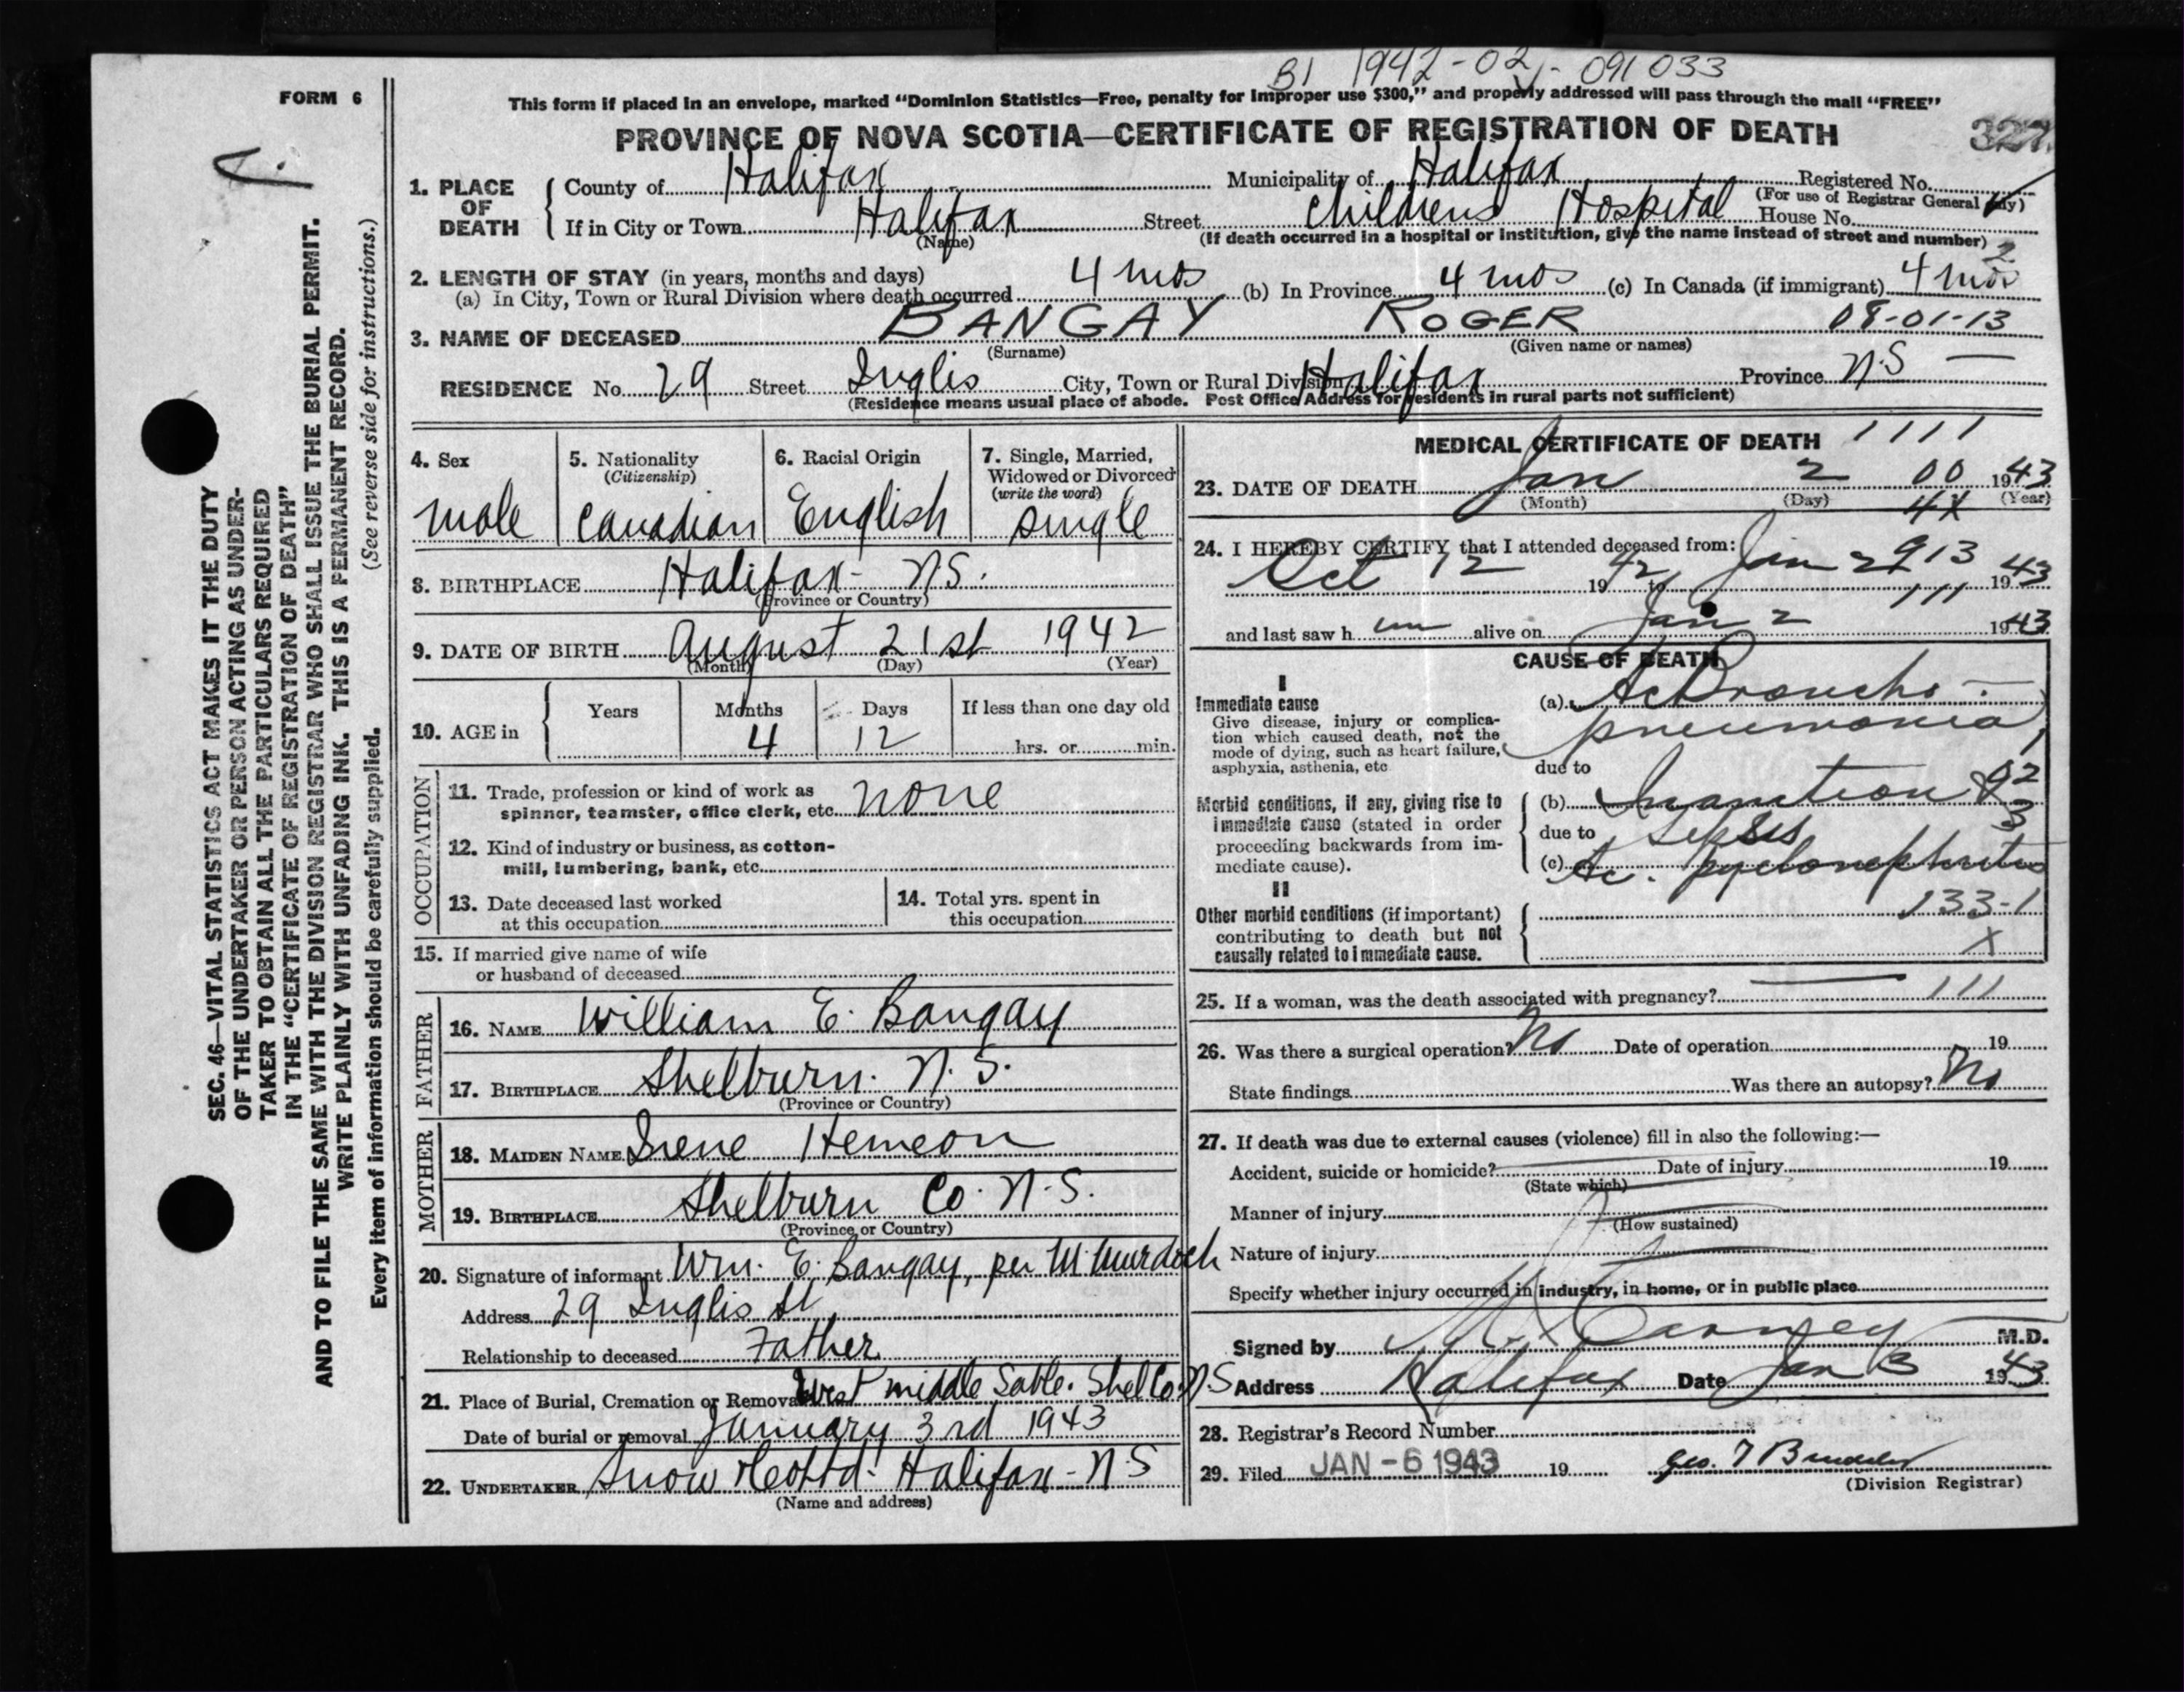 B1 1942-02-091033
FORM 6
This form if placed in an envelope, marked "Dominion Statistics—Free, penalty for improper use $300," and properly addressed will pass through the mail "FREE"
PROVINCE OF NOVA SCOTIA—CERTIFICATE OF REGISTRATION OF DEATH
327
1. PLACE OF DEATH
County of Halifax Municipality of Halifax Registered No.
(For use of Registrar General only)
If in City or Town Halifax Street Childrens Hospital House No.
(Name) (If death occurred in a hospital or institution, give the name instead of street and number)
2. LENGTH OF STAY (in years, months and days)
(a) In City, Town or Rural Division where death occurred 4 mos (b) In Province 4 mos (c) In Canada (if immigrant) 4 mos
3. NAME OF DECEASED BANGAY ROGER 08-01-13
(Surname) (Given name or names)
RESIDENCE No. 29 Street Inglis City, Town or Rural Division Halifax Province N.S —
(Residence means usual place of abode. Post Office Address for residents in rural parts not sufficient)
4. Sex
male
5. Nationality
(Citizenship)
Canadian
6. Racial Origin
English
7. Single, Married,
Widowed or Divorced
(write the word)
single
8. BIRTHPLACE Halifax - N.S.
(Province or Country)
9. DATE OF BIRTH August 21st 1942
(Month) (Day) (Year)
10. AGE in
Years Months Days If less than one day old
4 12 hrs. or min.
OCCUPATION
11. Trade, profession or kind of work as
spinner, teamster, office clerk, etc. none
12. Kind of industry or business, as cotton-
mill, lumbering, bank, etc.
13. Date deceased last worked
at this occupation
14. Total yrs. spent in
this occupation
15. If married give name of wife
or husband of deceased
FATHER
16. NAME William E. Bangay
17. BIRTHPLACE Shelburn. N.S.
(Province or Country)
MOTHER
18. MAIDEN NAME Irene Hemeon
19. BIRTHPLACE Shelburn Co. N.S.
(Province or Country)
20. Signature of informant Wm. E. Bangay, per M Murdoch
Address 29 Inglis St
Relationship to deceased Father
21. Place of Burial, Cremation or Removal West middle Sable. Shel Co. N.S
Date of burial or removal January 3rd 1943
22. UNDERTAKER Snow & Co Ltd. Halifax - N.S
(Name and address)
MEDICAL CERTIFICATE OF DEATH 1111
23. DATE OF DEATH Jan 2 00 1943
(Month) (Day) 4X (Year)
24. I HEREBY CERTIFY that I attended deceased from:
Oct 12 1942 to Jan 2 913 1943
111
and last saw h im alive on Jan 2 1943
CAUSE OF DEATH
I
Immediate cause
Give disease, injury or complica-
tion which caused death, not the
mode of dying, such as heart failure,
asphyxia, asthenia, etc
(a) Ac Broncho-
pneumonia
due to
Morbid conditions, if any, giving rise to
immediate cause (stated in order
proceeding backwards from im-
mediate cause).
(b) Inanition &
due to Sepsis
(c) Ac. pyelonephritis
II
Other morbid conditions (if important)
contributing to death but not
causally related to immediate cause.
133-1
X
25. If a woman, was the death associated with pregnancy? — 111
26. Was there a surgical operation? No Date of operation 19
State findings Was there an autopsy? No
27. If death was due to external causes (violence) fill in also the following:—
Accident, suicide or homicide? Date of injury 19
(State which)
Manner of injury
(How sustained)
Nature of injury
Specify whether injury occurred in industry, in home, or in public place
Signed by Carney M.D.
Address Halifax Date Jan 3 1943
28. Registrar's Record Number
29. Filed JAN -6 1943 19 Geo. T
(Division Registrar)
SEC. 46—VITAL STATISTICS ACT MAKES IT THE DUTY
OF THE UNDERTAKER OR PERSON ACTING AS UNDER-
TAKER TO OBTAIN ALL THE PARTICULARS REQUIRED
IN THE "CERTIFICATE OF REGISTRATION OF DEATH"
AND TO FILE THE SAME WITH THE DIVISION REGISTRAR WHO SHALL ISSUE THE BURIAL PERMIT.
WRITE PLAINLY WITH UNFADING INK. THIS IS A PERMANENT RECORD.
Every item of information should be carefully supplied. (See reverse side for instructions.)